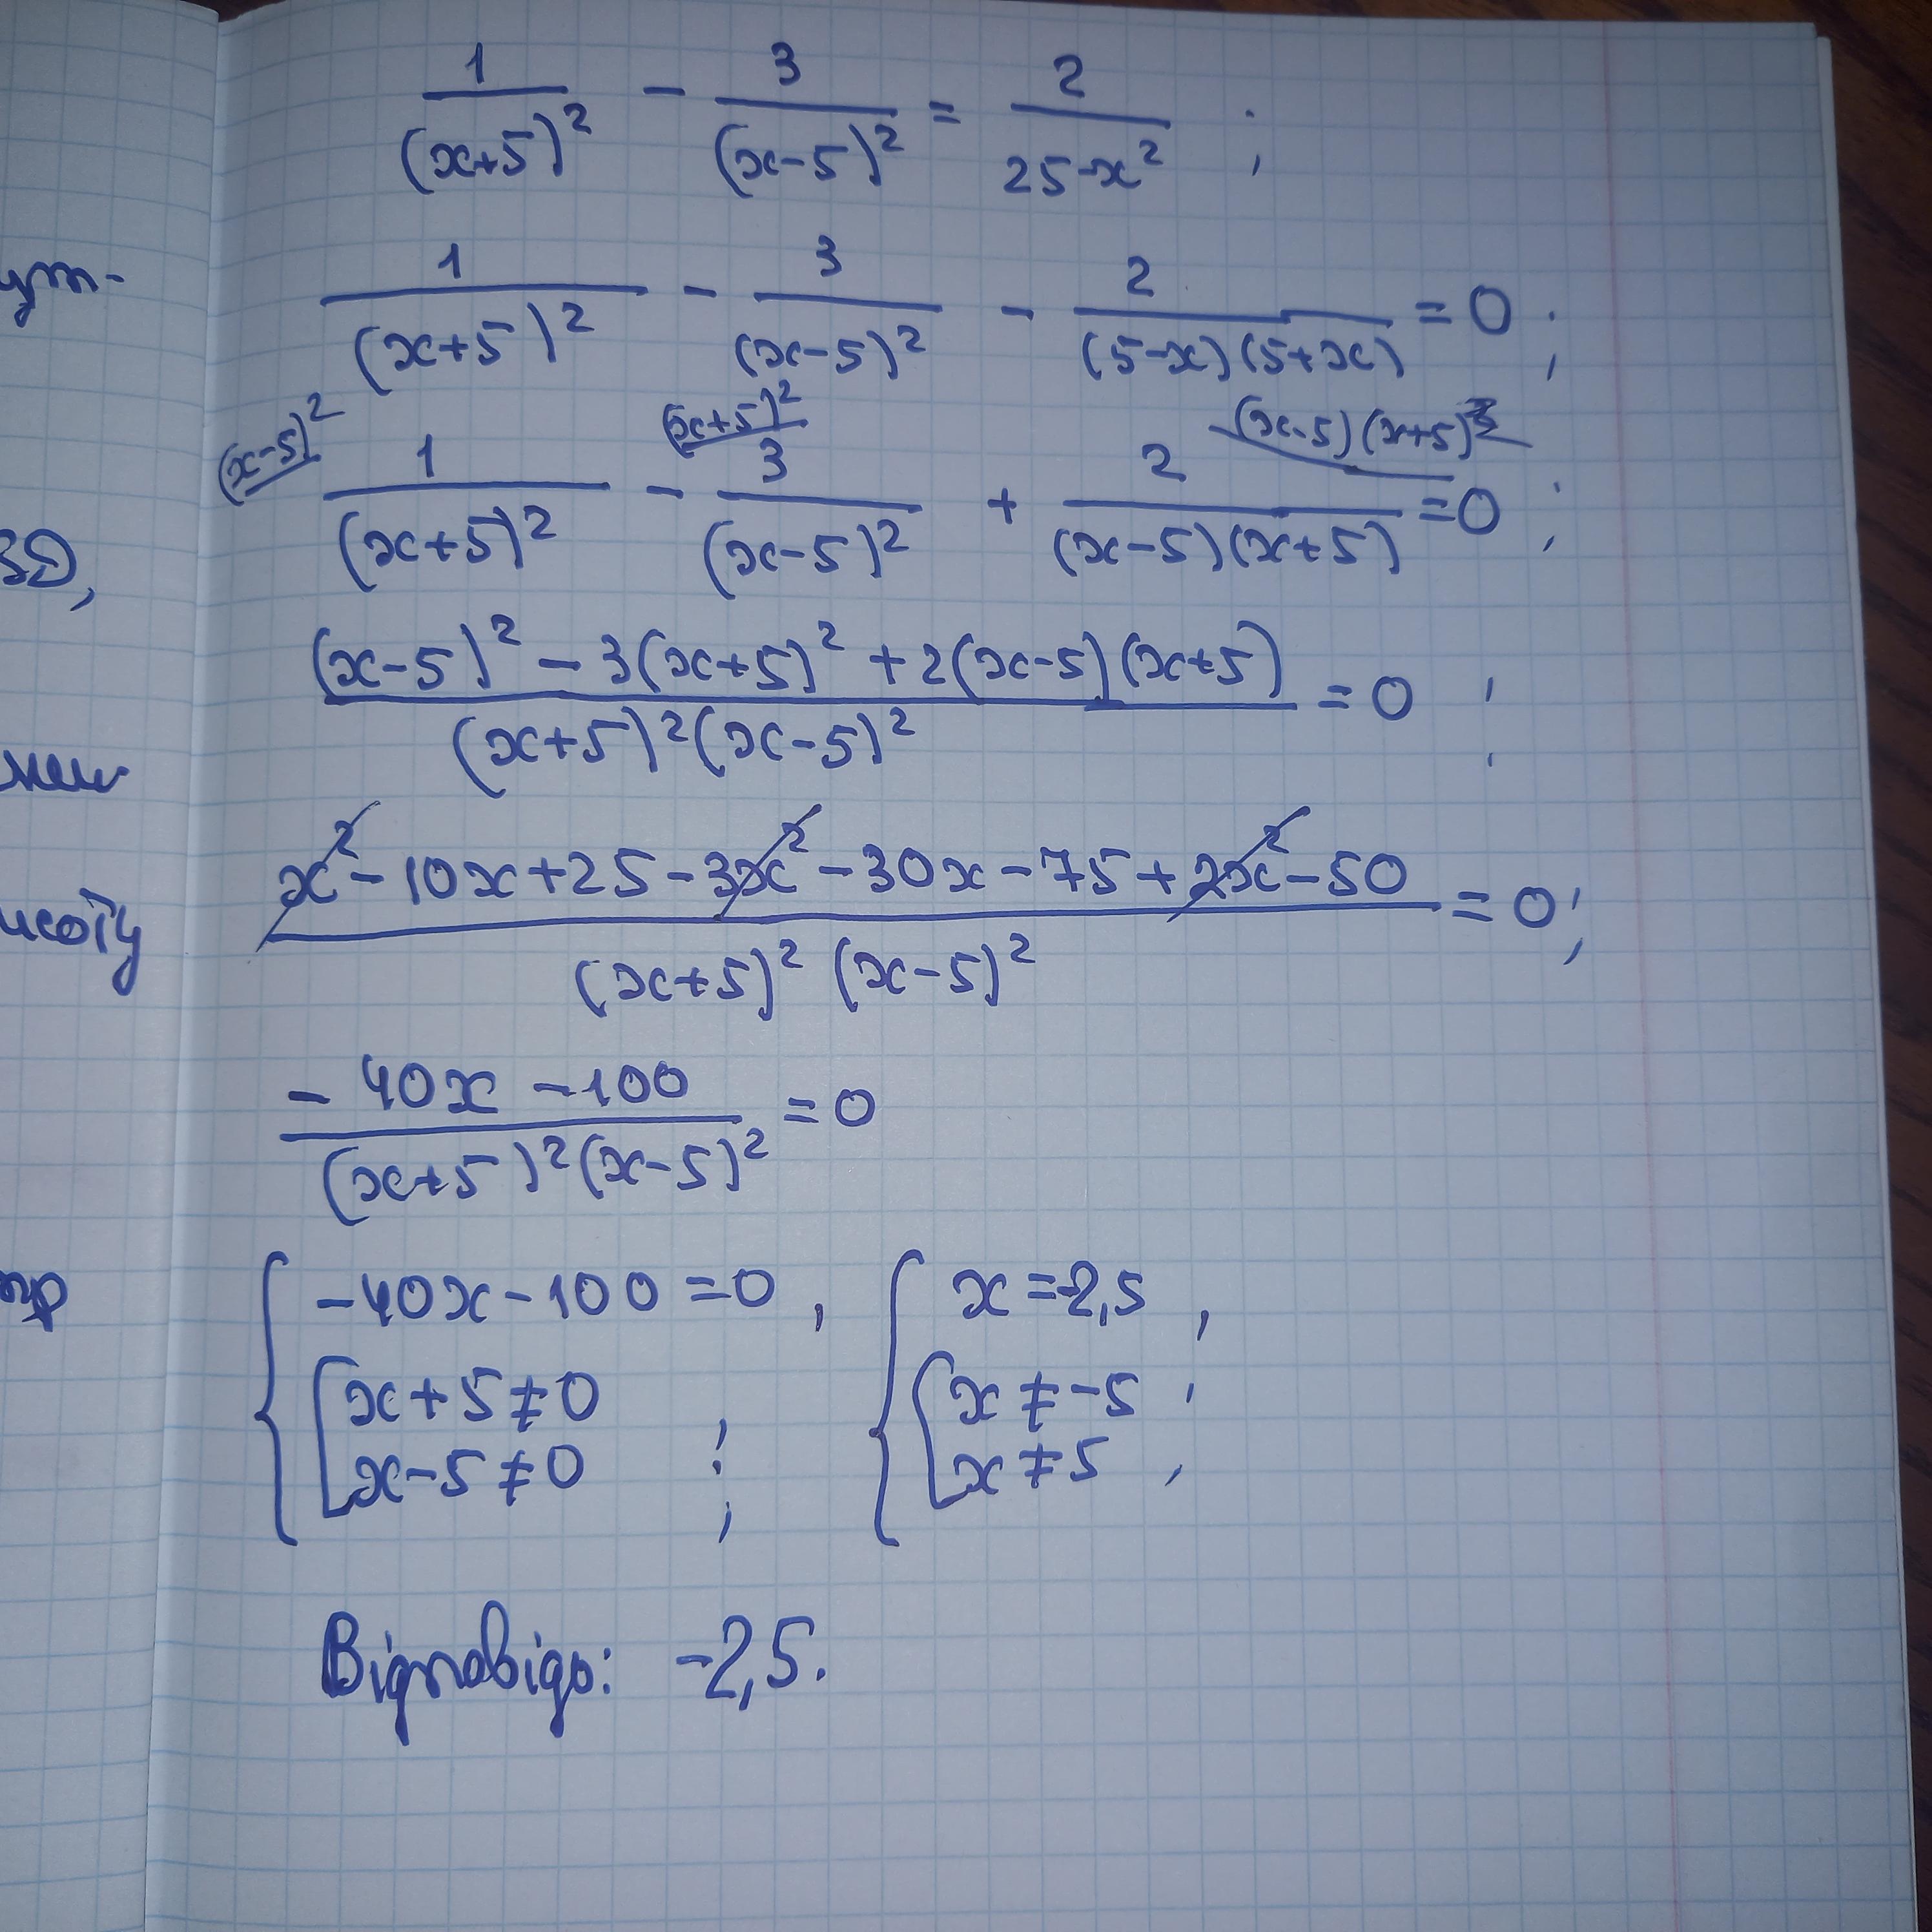 1/(x+5)² - 3/(x-5)² = 2/(25-x²) ;
1/(x+5)² - 3/(x-5)² - 2/((5-x)(5+x)) = 0 ;
(x-5)² (x+5)² (x-5)(x+5)
1/(x+5)² - 3/(x-5)² + 2/((x-5)(x+5)) = 0 ;
((x-5)² - 3(x+5)² + 2(x-5)(x+5))/((x+5)²(x-5)²) = 0 ;
(x² - 10x + 25 - 3x² - 30x - 75 + 2x² - 50)/((x+5)² (x-5)²) = 0 ;
(- 40x - 100)/((x+5)²(x-5)²) = 0
{ -40x - 100 = 0 , { x = -2,5 ,
[ x + 5 ≠ 0 [ x ≠ -5 ,
x - 5 ≠ 0 ; x ≠ 5 ,
Відповідь: -2,5.